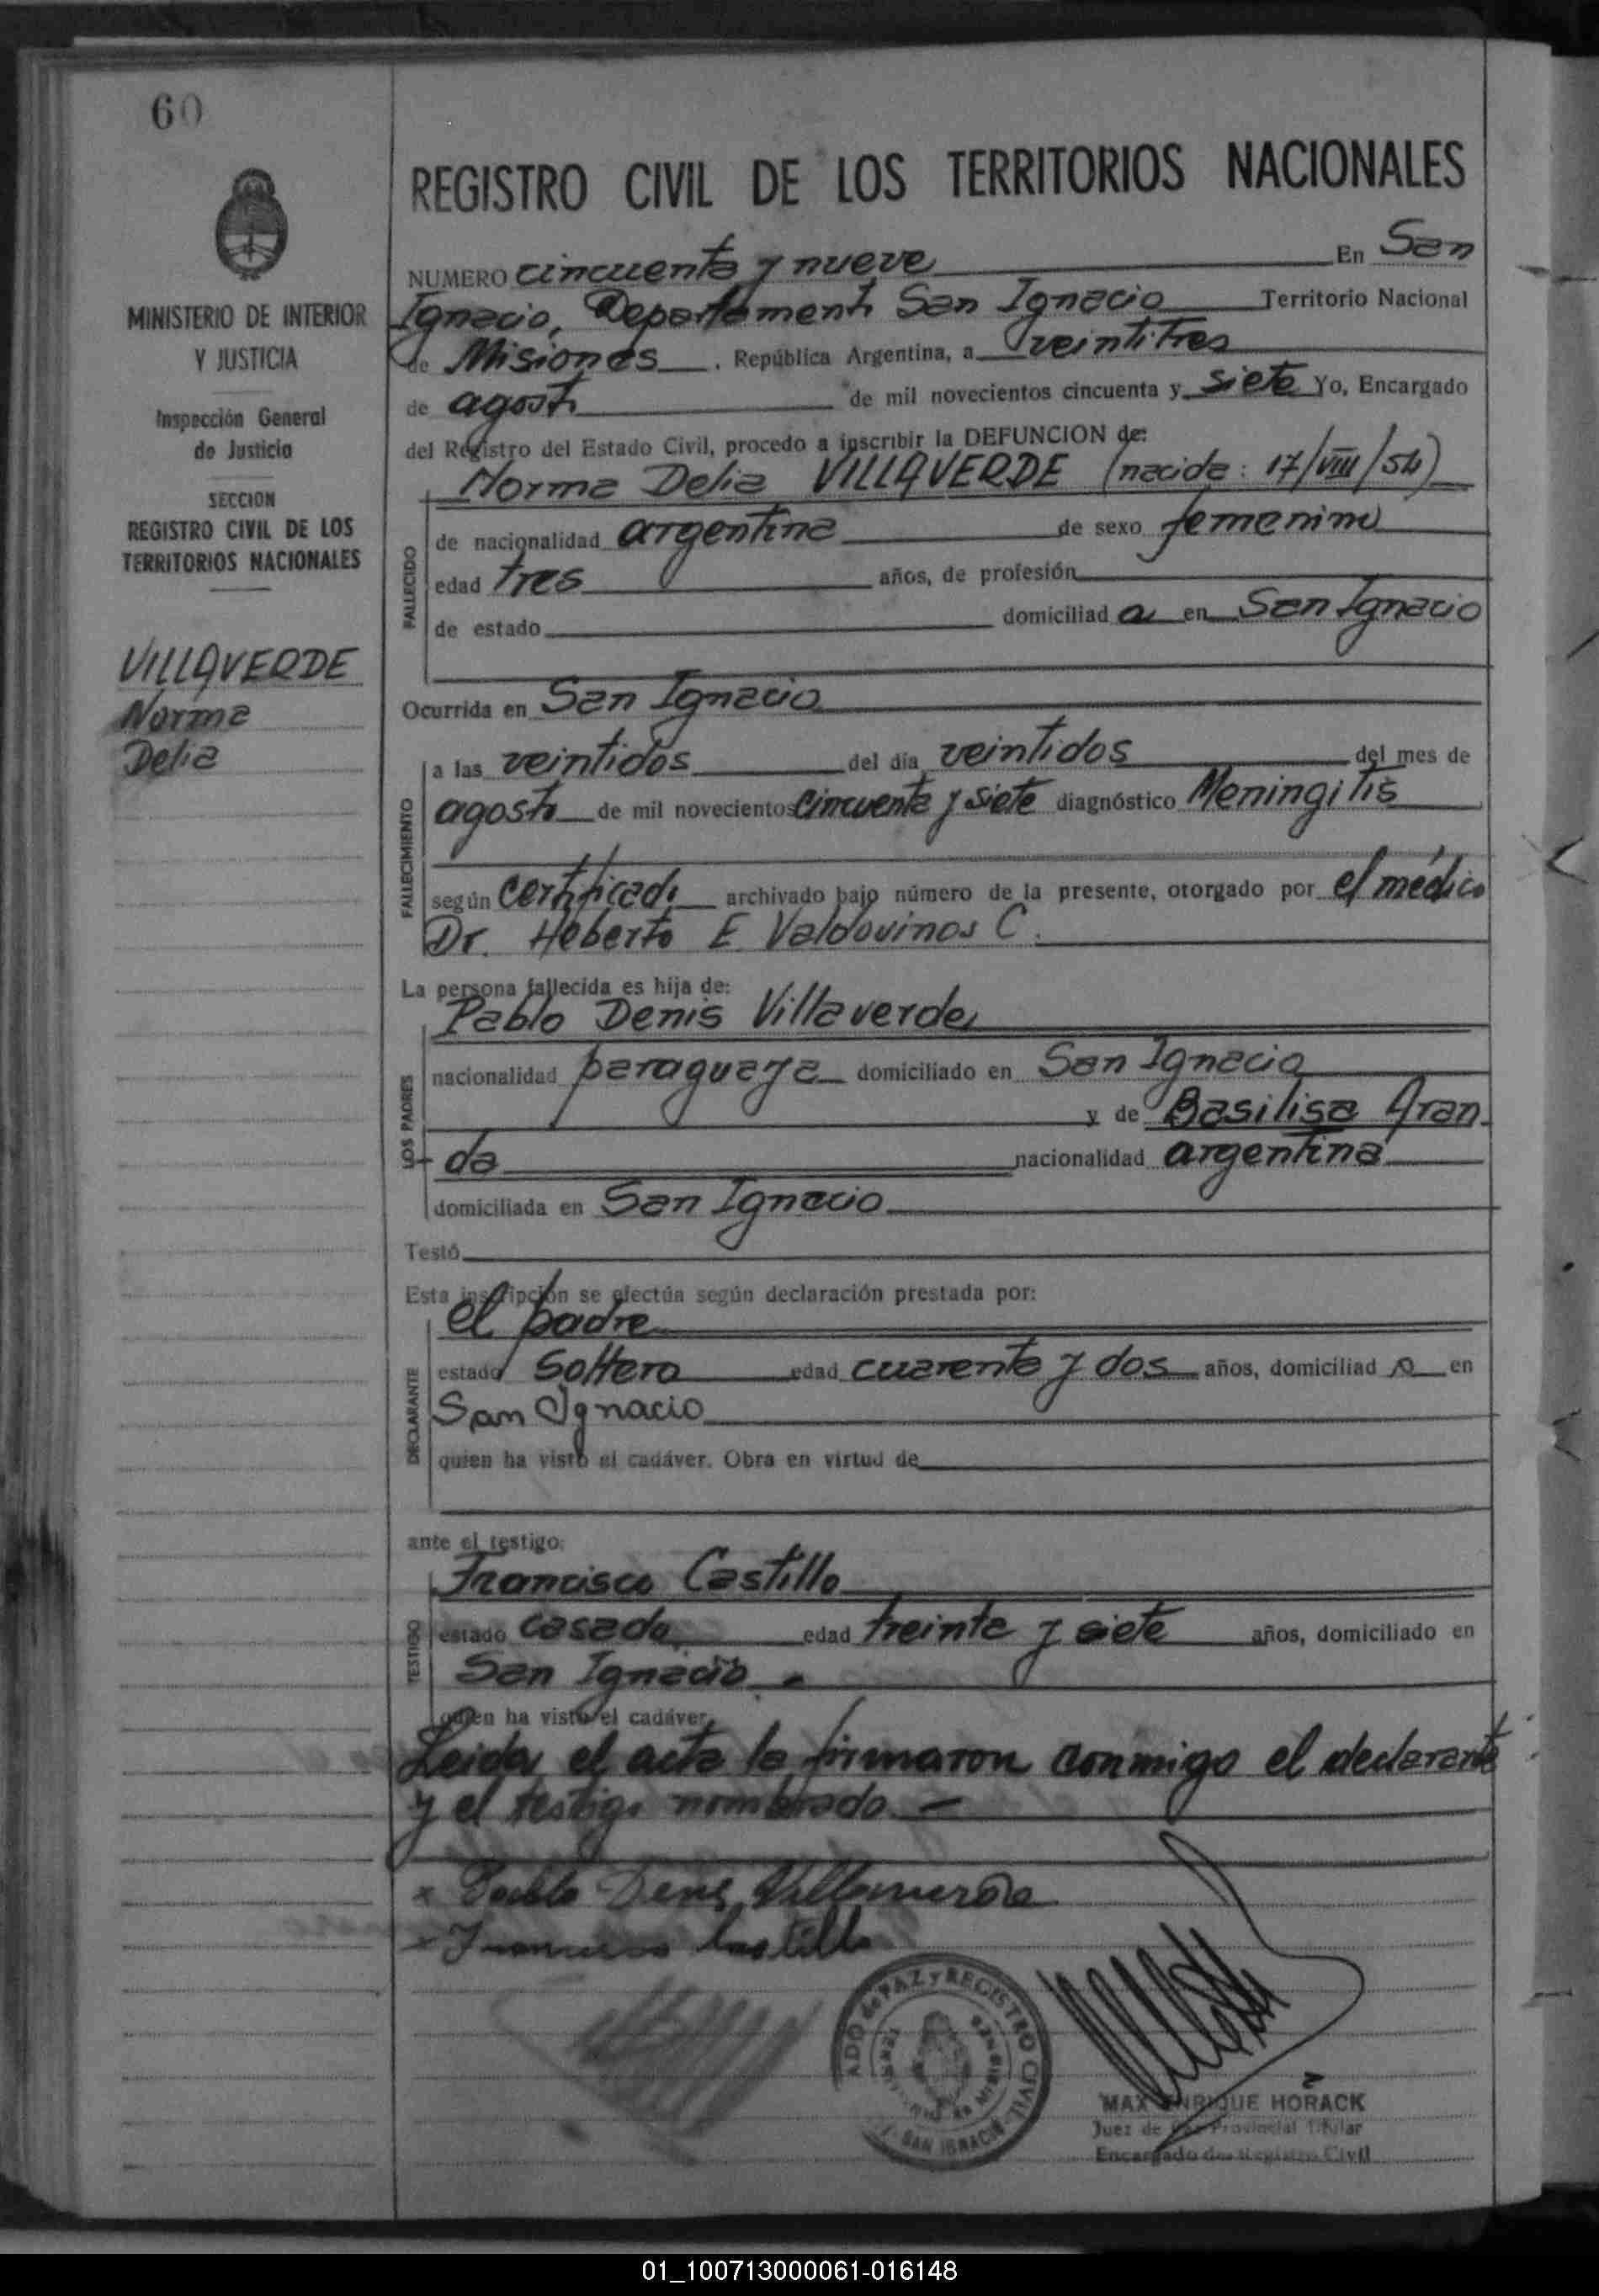 60
REGISTRO CIVIL DE LOS TERRITORIOS NACIONALES
MINISTERIO DE INTERIOR
Y JUSTICIA
Inspección General
de Justicia
SECCION
REGISTRO CIVIL DE LOS
TERRITORIOS NACIONALES
VILLAVERDE
Norma
Delia
NUMERO cincuenta y nueve En San
Ignacio, Departamento San Ignacio Territorio Nacional
de Misiones, República Argentina, a veintitres
de agosto de mil novecientos cincuenta y siete Yo, Encargado
del Registro del Estado Civil, procedo a inscribir la DEFUNCION de:
Norma Delia VILLAVERDE (nacida: 17/VIII/54)
FALLECIDO
de nacionalidad argentina de sexo femenino
edad tres años, de profesión
de estado domiciliad a en San Ignacio
Ocurrida en San Ignacio
FALLECIMIENTO
a las veintidos del día veintidos del mes de
agosto de mil novecientos cincuenta y siete diagnóstico Meningitis
según certificado archivado bajo número de la presente, otorgado por el médico
Dr. Heberto E. Valdovinos C.
La persona fallecida es hija de:
LOS PADRES
Pablo Denis Villaverde
nacionalidad paraguaya domiciliado en San Ignacio
y de Basilisa Aran
da nacionalidad argentina
domiciliada en San Ignacio
Testó
Esta inscripción se efectúa según declaración prestada por:
DECLARANTE
el padre
estado soltero edad cuarenta y dos años, domiciliad o en
San Ignacio
quien ha visto el cadáver. Obra en virtud de
ante el testigo:
TESTIGO
Francisco Castillo
estado casado edad treinta y siete años, domiciliado en
San Ignacio
quien ha visto el cadáver.
Leida el acta la firmaron conmigo el declarante
y el testigo nombrado. —
x Pablo Denis Villaverde
x Francisco Castillo
ADO de PAZ y REGISTRO CIVIL
SAN IGNACIO
MAX ENRIQUE HORACK
Juez de Paz Provincial Titular
Encargado del Registro Civil
01_100713000061-016148